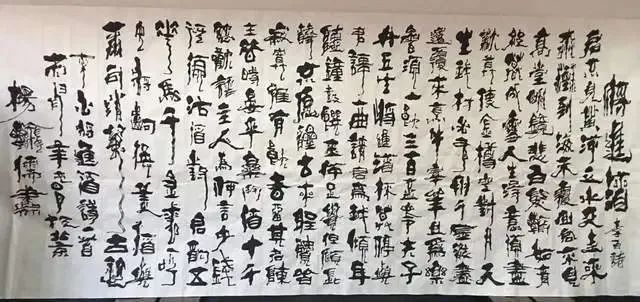 將進酒
李白詩
君不見黃河之水天上來
奔流到海不復回君不見
高堂明鏡悲白髮朝如青
絲暮成雪人生得意須盡
歡莫使金樽空對月天
生我材必有用千金散盡
還復來烹羊宰牛且爲樂
會須一飲三百杯岑夫子
丹丘生將進酒杯莫停與
君歌一曲請君爲我傾耳
聽鐘鼓饌玉不足貴但願長
醉不願醒古來聖賢皆
寂寞唯有飲者留其名陳
王昔時宴平樂斗酒十千
恣歡謔主人爲何言少錢
徑須沽酒對君酌五
花馬千金裘呼
兒將出換美酒與
爾同銷萬古愁
李白將進酒詩一首
楊儒書